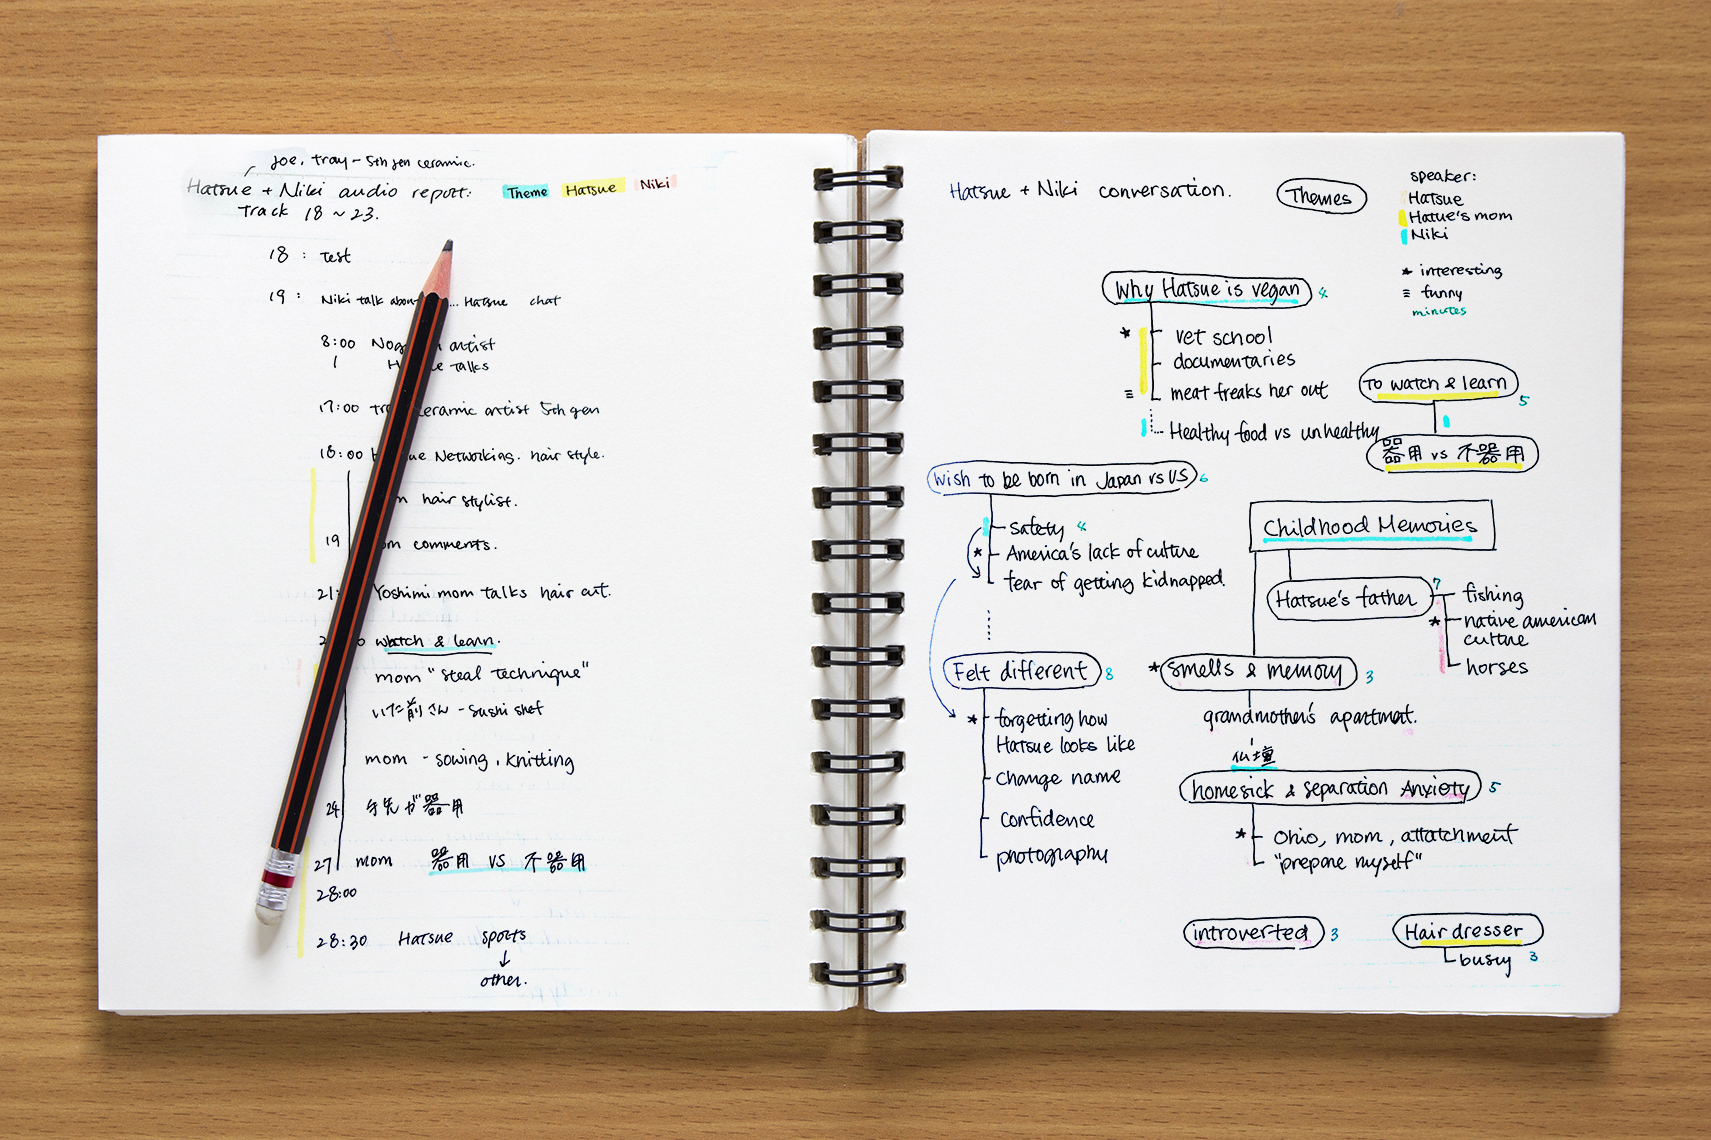 Joe, tray - 5th gen ceramic.
Hatsue + Niki audio report: Theme Hatsue Niki
Track 18 ~ 23.
18 : test
19 : Niki talk ... Hatsue chat
8:00 artist
talks
17:00 ceramic artist 5th gen
18:00 Networking. hair style.
hair stylist.
19 comments.
21: Yoshimi mom talks hair cut.
watch & learn.
mom "steal technique"
いた前さん - sushi shef
mom - sowing, knitting
24 手先が器用
27 mom 器用 vs 不器用
28:00
28:30 Hatsue sports
↓
other.
Hatsue + Niki conversation.
Themes
speaker:
Hatsue
Hatue's mom
Niki
* interesting
≡ funny
minutes
Why Hatsue is vegan 4
* vet school
documentaries
≡ meat freaks her out
Healthy food vs unhealthy
To watch & learn 5
器用 vs 不器用
Wish to be born in Japan vs US 6
safety 4
* America's lack of culture
fear of getting kidnapped.
Childhood Memories
Hatsue's father 7
fishing
* native american
culture
horses
Felt different 8
* forgetting how
Hatsue looks like
change name
confidence
photography
* smells & memory 3
grandmother's apartment.
仏壇
homesick & separation Anxiety 5
* Ohio, mom, attatchment
"prepare myself"
introverted 3
Hair dresser
busy 3